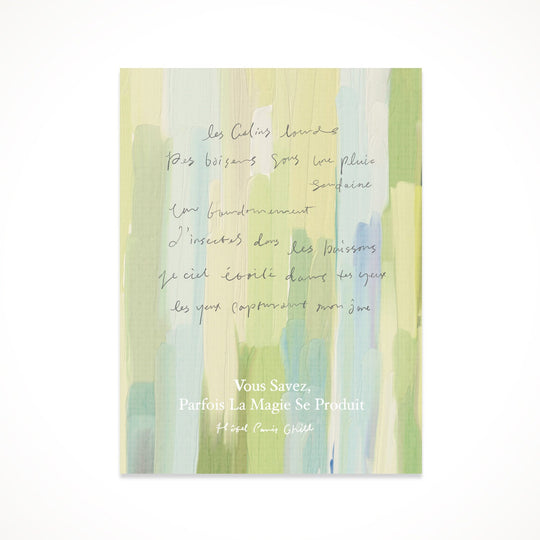 les Calins lourds
Des baisers sous une pluie
soudaine
Un bourdonnement
d'insectes dans les buissons
le ciel étoilé dans tes yeux
les yeux capturant mon âme
Vous Savez,
Parfois La Magie Se Produit
Hôtel Paris Chill